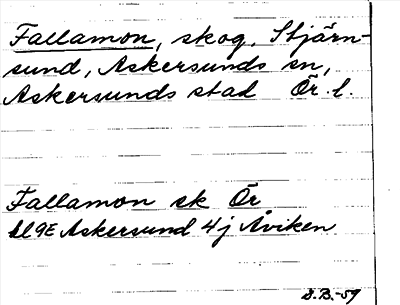 Fallamon, skog, Stjärn-
sund, Askersunds sn,
Askersunds stad Ör. l.
Fallamon sk Ör
bl 9E Askersund 4j Åviken
S.B.-59